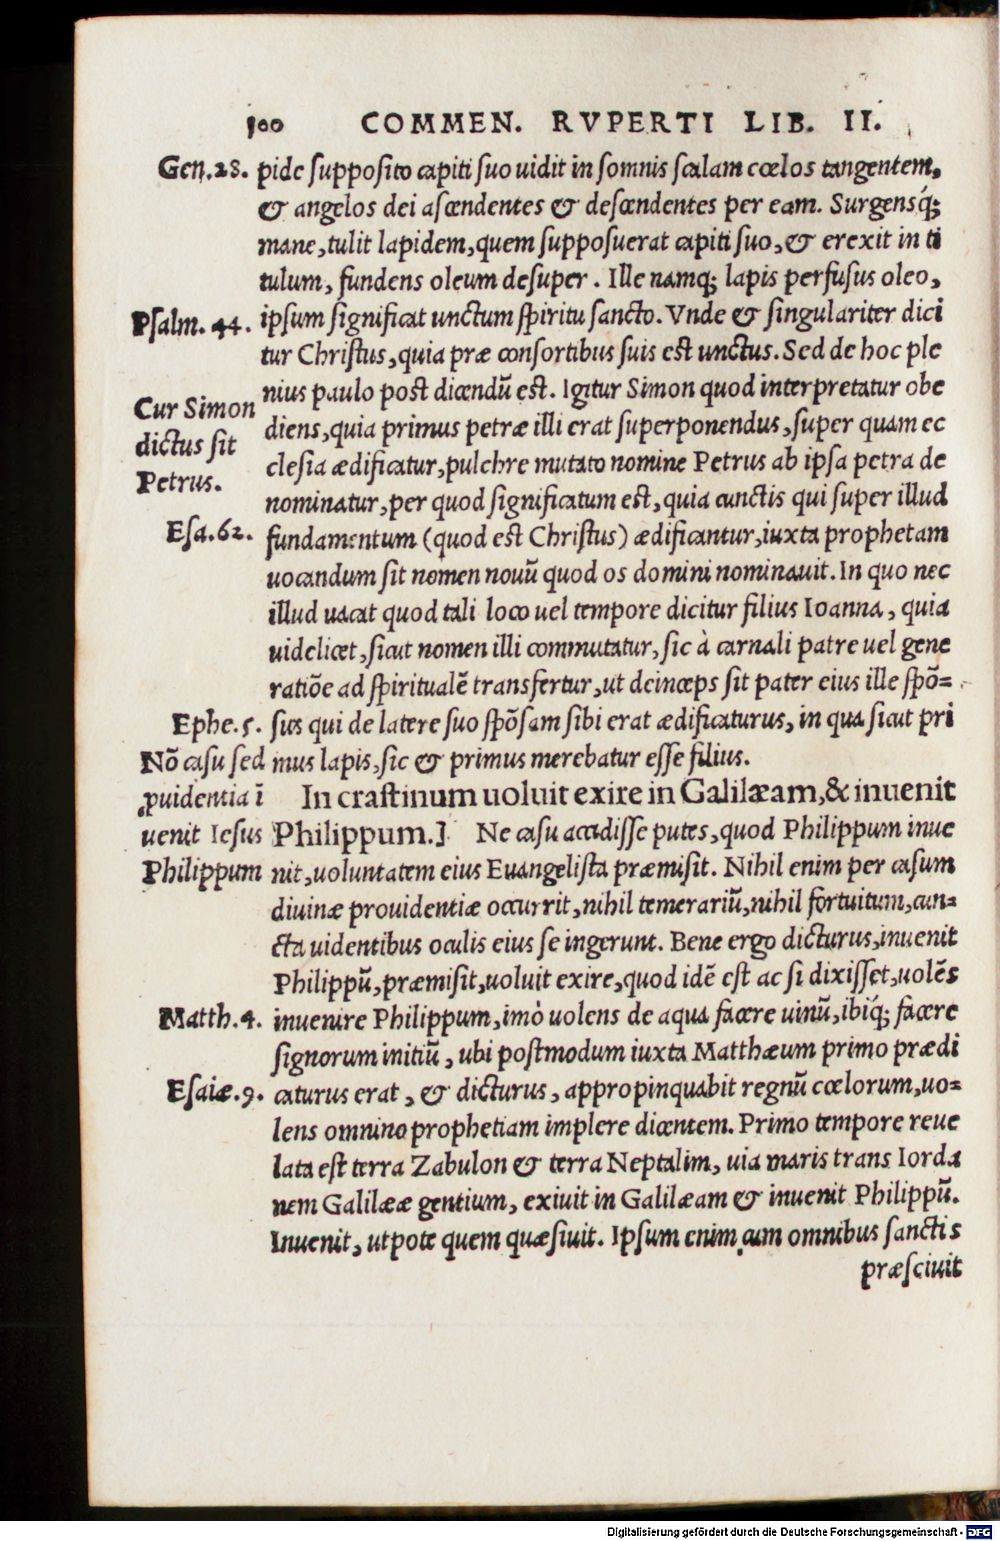 100 COMMEN. RVPERTI LIB. II.
Gen.28. pide ſuppoſito capiti ſuo uidit in ſomnis ſcalam cœlos tangentem,
& angelos dei aſcendentes & deſcendentes per eam. Surgensq́;
mane, tulit lapidem, quem ſuppoſuerat capiti ſuo, & erexit in ti
tulum, fundens oleum deſuper. Ille namq; lapis perfuſus oleo,
Pſalm. 44. ipſum ſignificat unctum ſpiritu ſancto. Vnde & ſingulariter dici
tur Chriſtus, quia præ conſortibus ſuis eſt unctus. Sed de hoc ple
nius paulo poſt dicendū eſt. Igitur Simon quod interpretatur obe
Cur Simon diens, quia primus petræ illi erat ſuperponendus, ſuper quam ec
dictus ſit cleſia ædificatur, pulchre mutato nomine Petrus ab ipſa petra de
Petrus. nominatur, per quod ſignificatum eſt, quia cunctis qui ſuper illud
Eſa.62. fundamentum (quod eſt Chriſtus) ædificantur, iuxta prophetam
uocandum ſit nomen nouū quod os domini nominauit. In quo nec
illud uacat quod tali loco uel tempore dicitur filius Ioanna, quia
uidelicet, ſicut nomen illi commutatur, ſic à carnali patre uel gene
ratiōe ad ſpiritualē transfertur, ut deinceps ſit pater eius ille ſpō=
Ephe.5. ſus qui de latere ſuo ſpōſam ſibi erat ædificaturus, in qua ſicut pri
Nō caſu ſed mus lapis, ſic & primus merebatur eſſe filius.
ꝓuidentia ī In craſtinum uoluit exire in Galilæam, & inuenit
uenit Ieſus Philippum.] Ne caſu accidiſſe putes, quod Philippum inue
Philippum nit, uoluntatem eius Euangeliſta præmiſit. Nihil enim per caſum
diuinæ prouidentiæ occurrit, nihil temerariū, nihil fortuitum, cun=
cta uidentibus oculis eius ſe ingerunt. Bene ergo dicturus, inuenit
Philippū, præmiſit, uoluit exire, quod idē eſt ac ſi dixiſſet, uolēs
Matth.4. inuenire Philippum, imò uolens de aqua facere uinū, ibiq́; facere
ſignorum initiū, ubi poſtmodum iuxta Matthæum primo prædi
Eſaiæ.9. caturus erat, & dicturus, appropinquabit regnū cœlorum, uo=
lens omnino prophetiam implere dicentem. Primo tempore reue
lata eſt terra Zabulon & terra Neptalim, uia maris trans Iorda
nem Galilææ gentium, exiuit in Galilæam & inuenit Philippū.
Inuenit, utpote quem quæſiuit. Ipſum enim cum omnibus ſanctis
præſciuit
Digitalisierung gefördert durch die Deutsche Forschungsgemeinschaft - DFG